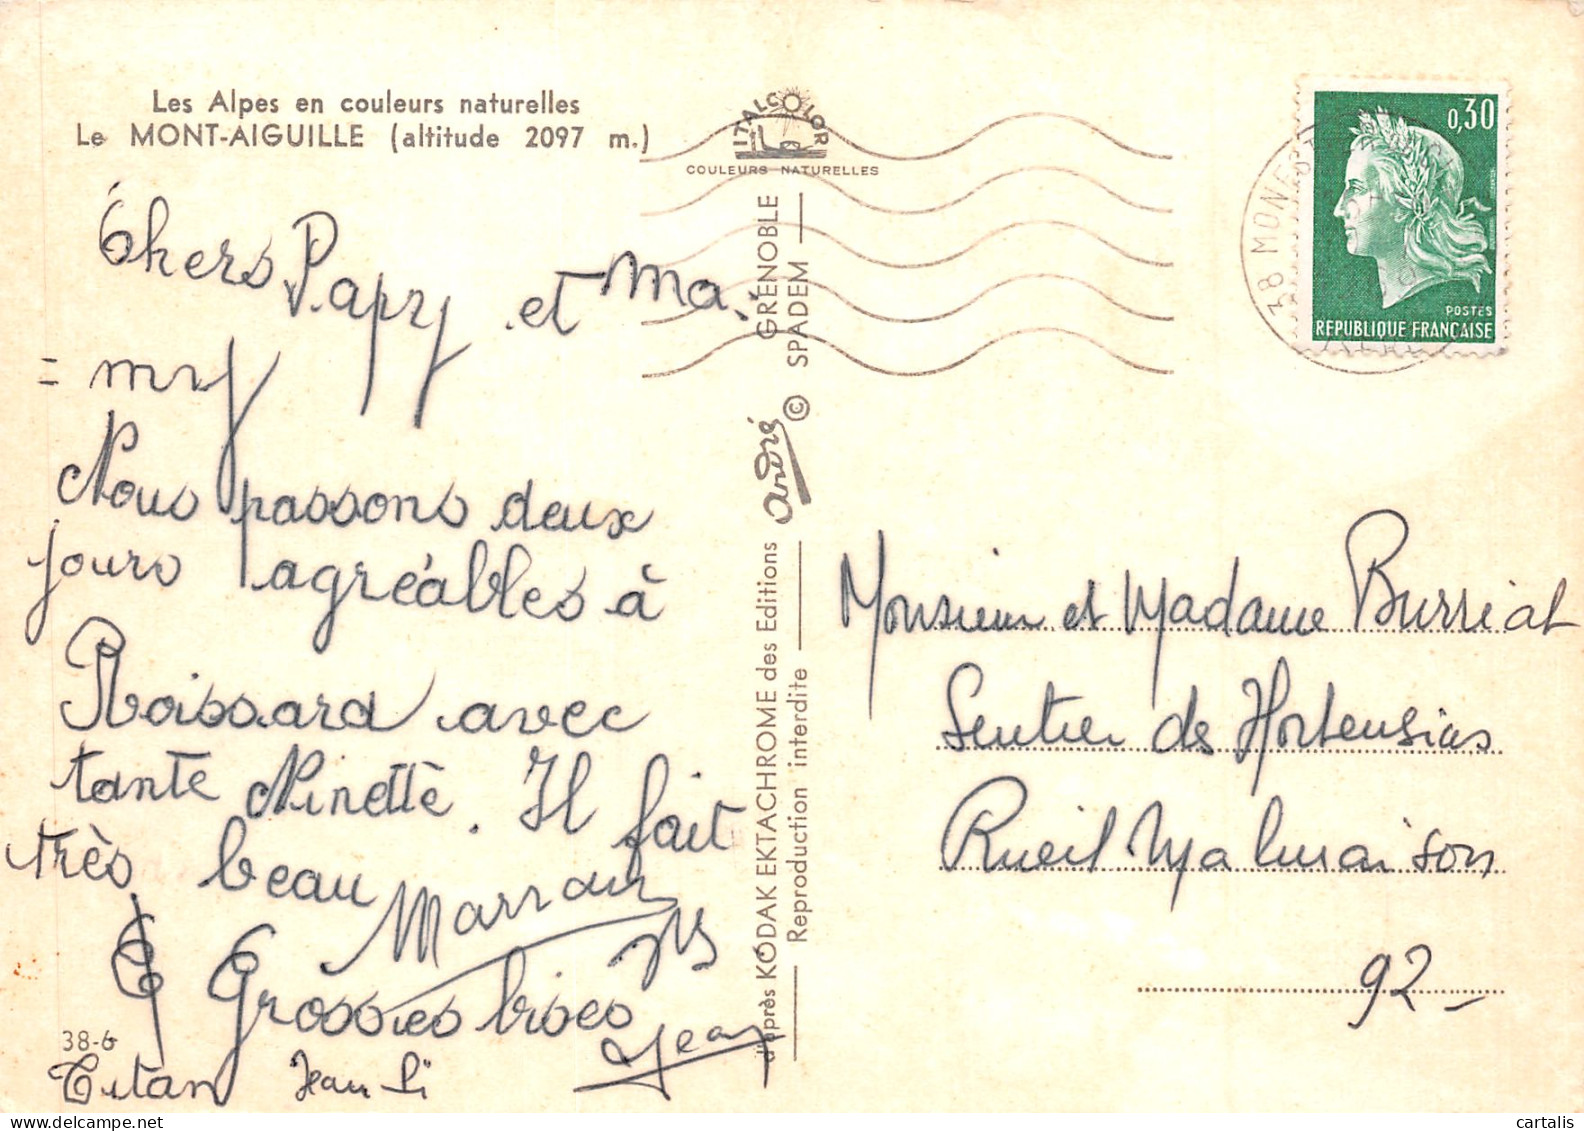 Les Alpes en couleurs naturelles
Le MONT-AIGUILLE (altitude 2097 m.)
Chers Papy et Ma-
= my
Nous passons deux
jours agréables à
Roissard avec
tante Ninette. Il fait
très beau
Grosses bises
Jean
38-6
Titan
ITALCOLOR
COULEURS NATURELLES
d'après KODAK EKTACHROME des Editions André GRENOBLE
Reproduction interdite © SPADEM
0,30
POSTES
REPUBLIQUE FRANÇAISE
Monsieur et Madame Burriat
Sentier des Hortensias
Rueil Malmaison
92-
cartalis